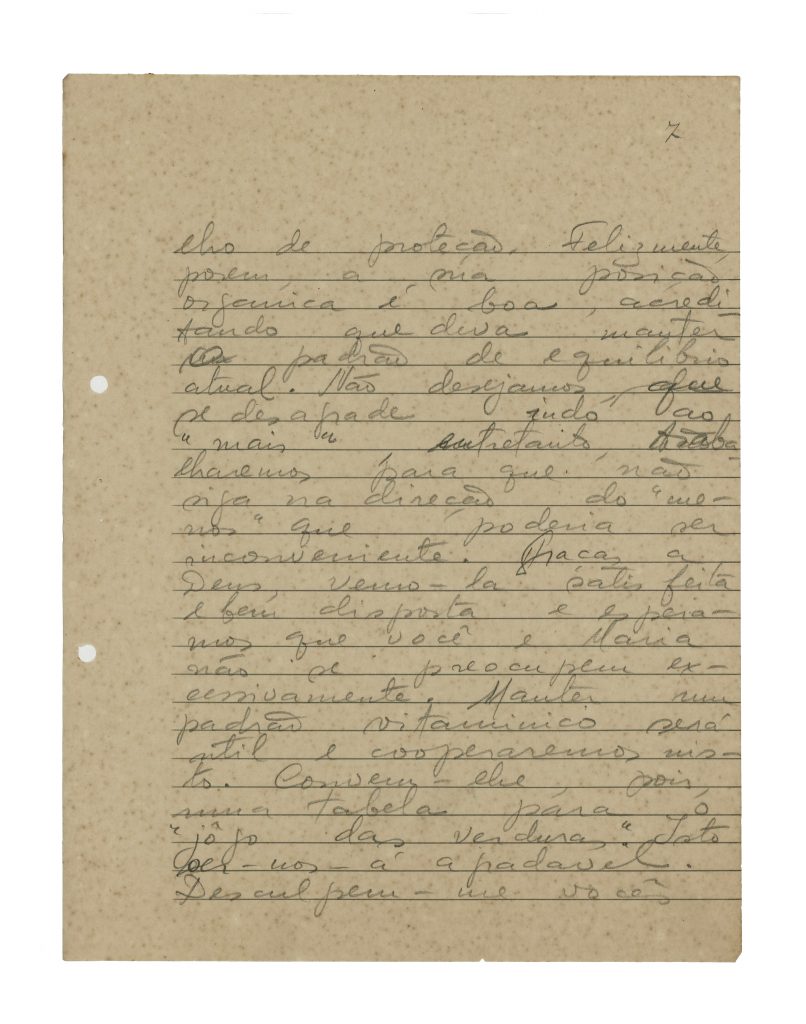 7
elho de proteção. Felizmente,
porem, a sua posição
orgânica é boa, acredi
tando que deva manter
o padrão de equilíbrio
atual. Não desejamos que
se desagrade indo ao
"mais", entretanto, traba
lharemos para que não
siga na direção do "me-
nos" que poderia ser
inconveniente. Graças a
Deus, vemo-la satisfeita
e bem disposta e espera-
mos que você e Maria
não se preocupem ex-
cessivamente. Manter um
padrão vitaminico será
util e cooperaremos nis-
to. Convem-lhe, pois,
uma tabela para o
"jôgo das verduras". Isto
ser-nos-á agradavel.
Desculpem-me vocês